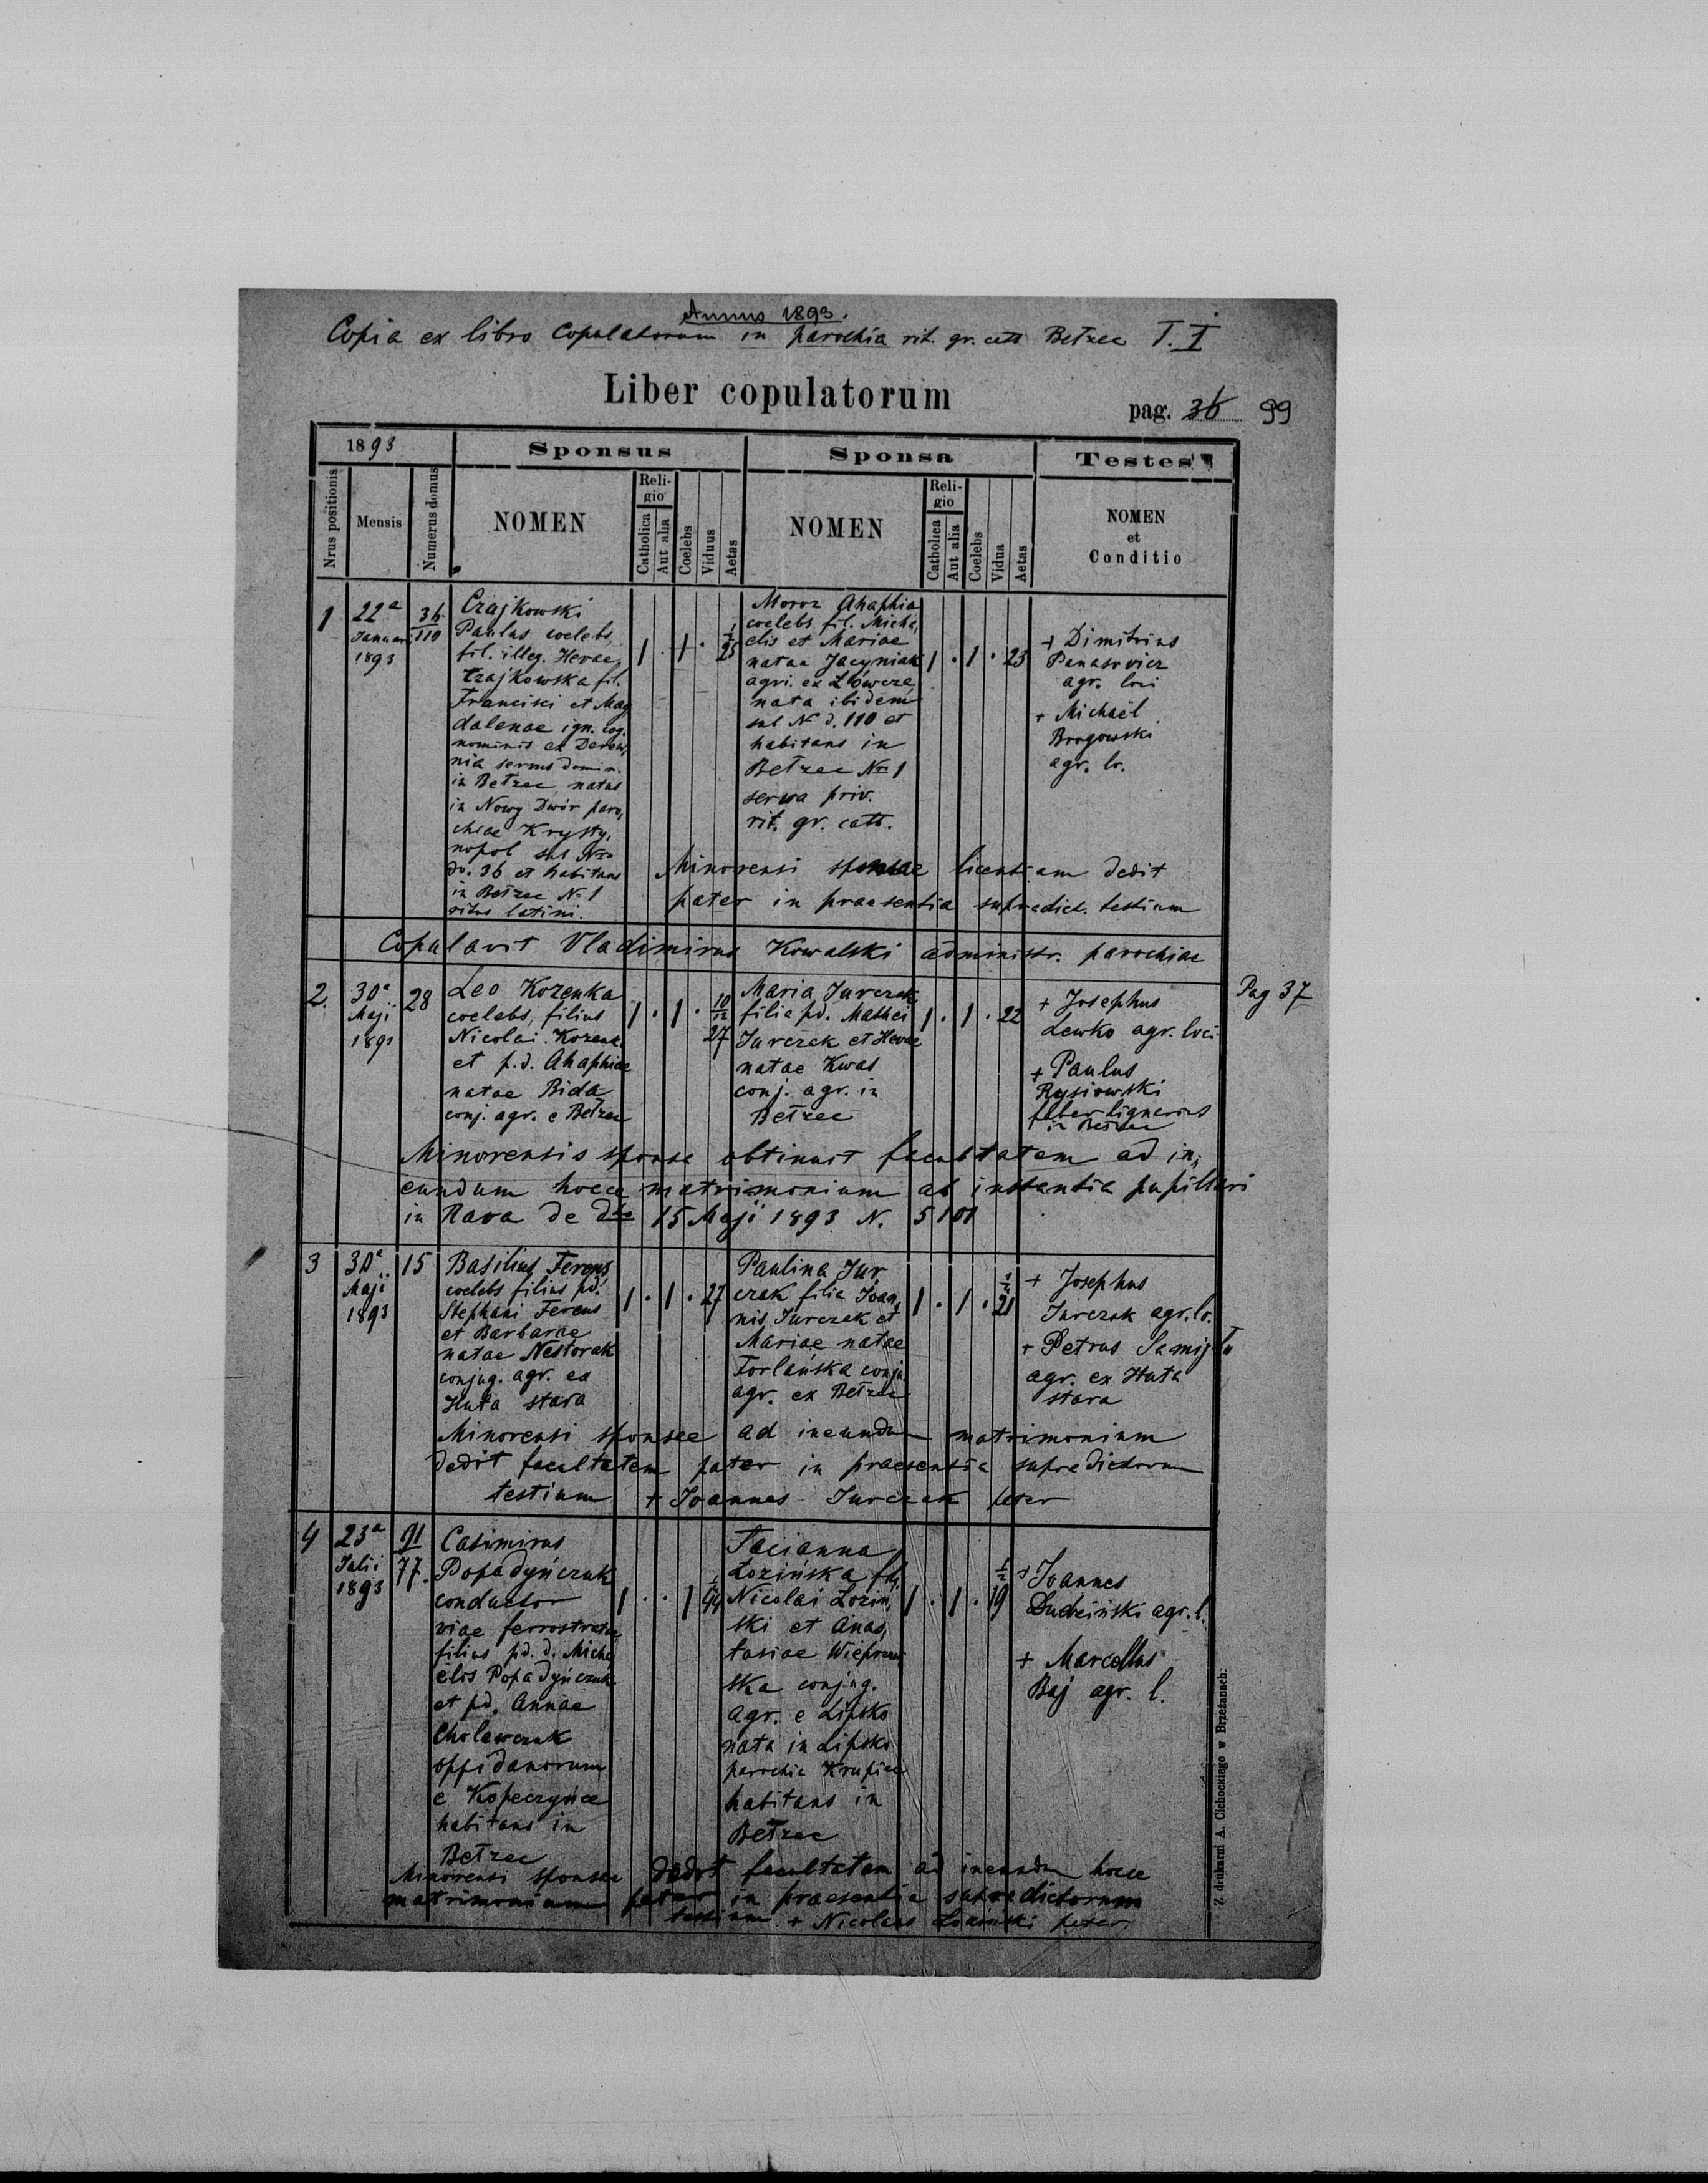 Annus 1893.
Copia ex libro Copulatorum in parochia rit. gr. cath Bełzec T. I
Liber copulatorum
pag. 36 99
1893
Sponsus
Sponsa
Testes
Nrus positionis
Mensis
Numerus domus
NOMEN
Religio
Catholica
Aut alia
Coelebs
Viduus
Aetas
NOMEN
Religio
Catholica
Aut alia
Coelebs
Vidua
Aetas
NOMEN
et
Conditio
1
22a
Januar.
1893
36
110
Czajkowski
Paulus coelebs,
fil. illeg. Hevae
Czajkowska fil.
Francisci et Mag
dalenae ign. cog.
nominis ex Derew,
nia servus domin.
in Bełzec, natus
in Nowy Dwór paro,
chiae Krysty,
nopol sub Nro
do. 36 et habitans
in Bełzec No 1
ritus latini.
1 . 1 . 25
Moroz Ahaphia
coelebs fil. Micha,
elis et Mariae
natae Jacyniak
agri. ex Łówcza
nata ibidem
sub N d. 110 et
habitans in
Bełzec No 1
serva priv.
rit. gr. cath.
1 . 1 . 23
+ Dimitrius
Panasowicz
agr. loci
+ Michaël
Brogowski
agr. lo.
Minorensi sponsae licentiam dedit
pater in praesentia supradict. testium
Copulavit Vladimirus Kowalski administr. parochiae
Pag 37
2.
30a
Maji
1893
28
Leo Kozenka
coelebs, filius
Nicolai Kozenka
et p.d. Ahaphiae
natae Bida
conj. agr. e Bełzec
1 . 1 . 10/12
27
Maria Jurczak
filia pd. Mathei
Jurczak et Hevae
natae Kwas
conj. agr. in
Bełzec
1 . 1 . 22
+ Josephus
Lewko agr. loci
+ Paulus
Rysiowski
faber lignarius
in Bełzec
Minorensis sponsa obtinuit facultatem ad in,
eundum hocce matrimonium ab instantia pupillari
in Rava de dto 15 Maji 1893 N. 5101
3
30a
Maji
1893
15
Basilius Ferens
coelebs filius pd.
Stephani Ferens
et Barbarae
natae Nestorak
conjug. agr. ex
Huta stara
1 . 1 . 27
Paulina Jur
czak filia Joan,
nis Jurczak et
Mariae natae
Forlańska conju.
agr. ex Bełzec
1 . 1 . 21
+ Josephus
Jurczak agr. lo.
+ Petrus Samijło
agr. ex Huta
stara
Minorensi sponsae ad ineundum matrimonium
dedit facultatem pater in praesentia supradictorum
testium + Joannes Jurczak pater
4
23a
Julii
1893
91
77.
Casimirus
Popadyńczuk
conductor
viae ferrostratae
filius pd. d. Micha
ëlis Popadyńczuk
et pd. Annae
Cholewczuk
oppidanorum
e Kopeczyńce
habitans in
Bełzec
1 . . 1 44
Tacianna
Łozińska fil.
Nicolai Łoziń,
ski et Anas,
tasiae Wieprzow
ska conjug.
agr. e Lipsko
nata in Lipsko
parochia Krupiec
habitans in
Bełzec
1 . 1 . 19
+ Joannes
Dudziński agr. l.
+ Marcellus
Baj agr. l.
Minorensi sponsae dedit facultatem ad ineundum hocce
matrimonium pater in praesentia supradictorum
testium + Nicolaus Łoziński pater.
Z drukarni A. Cichockiego w Brzeżanach.